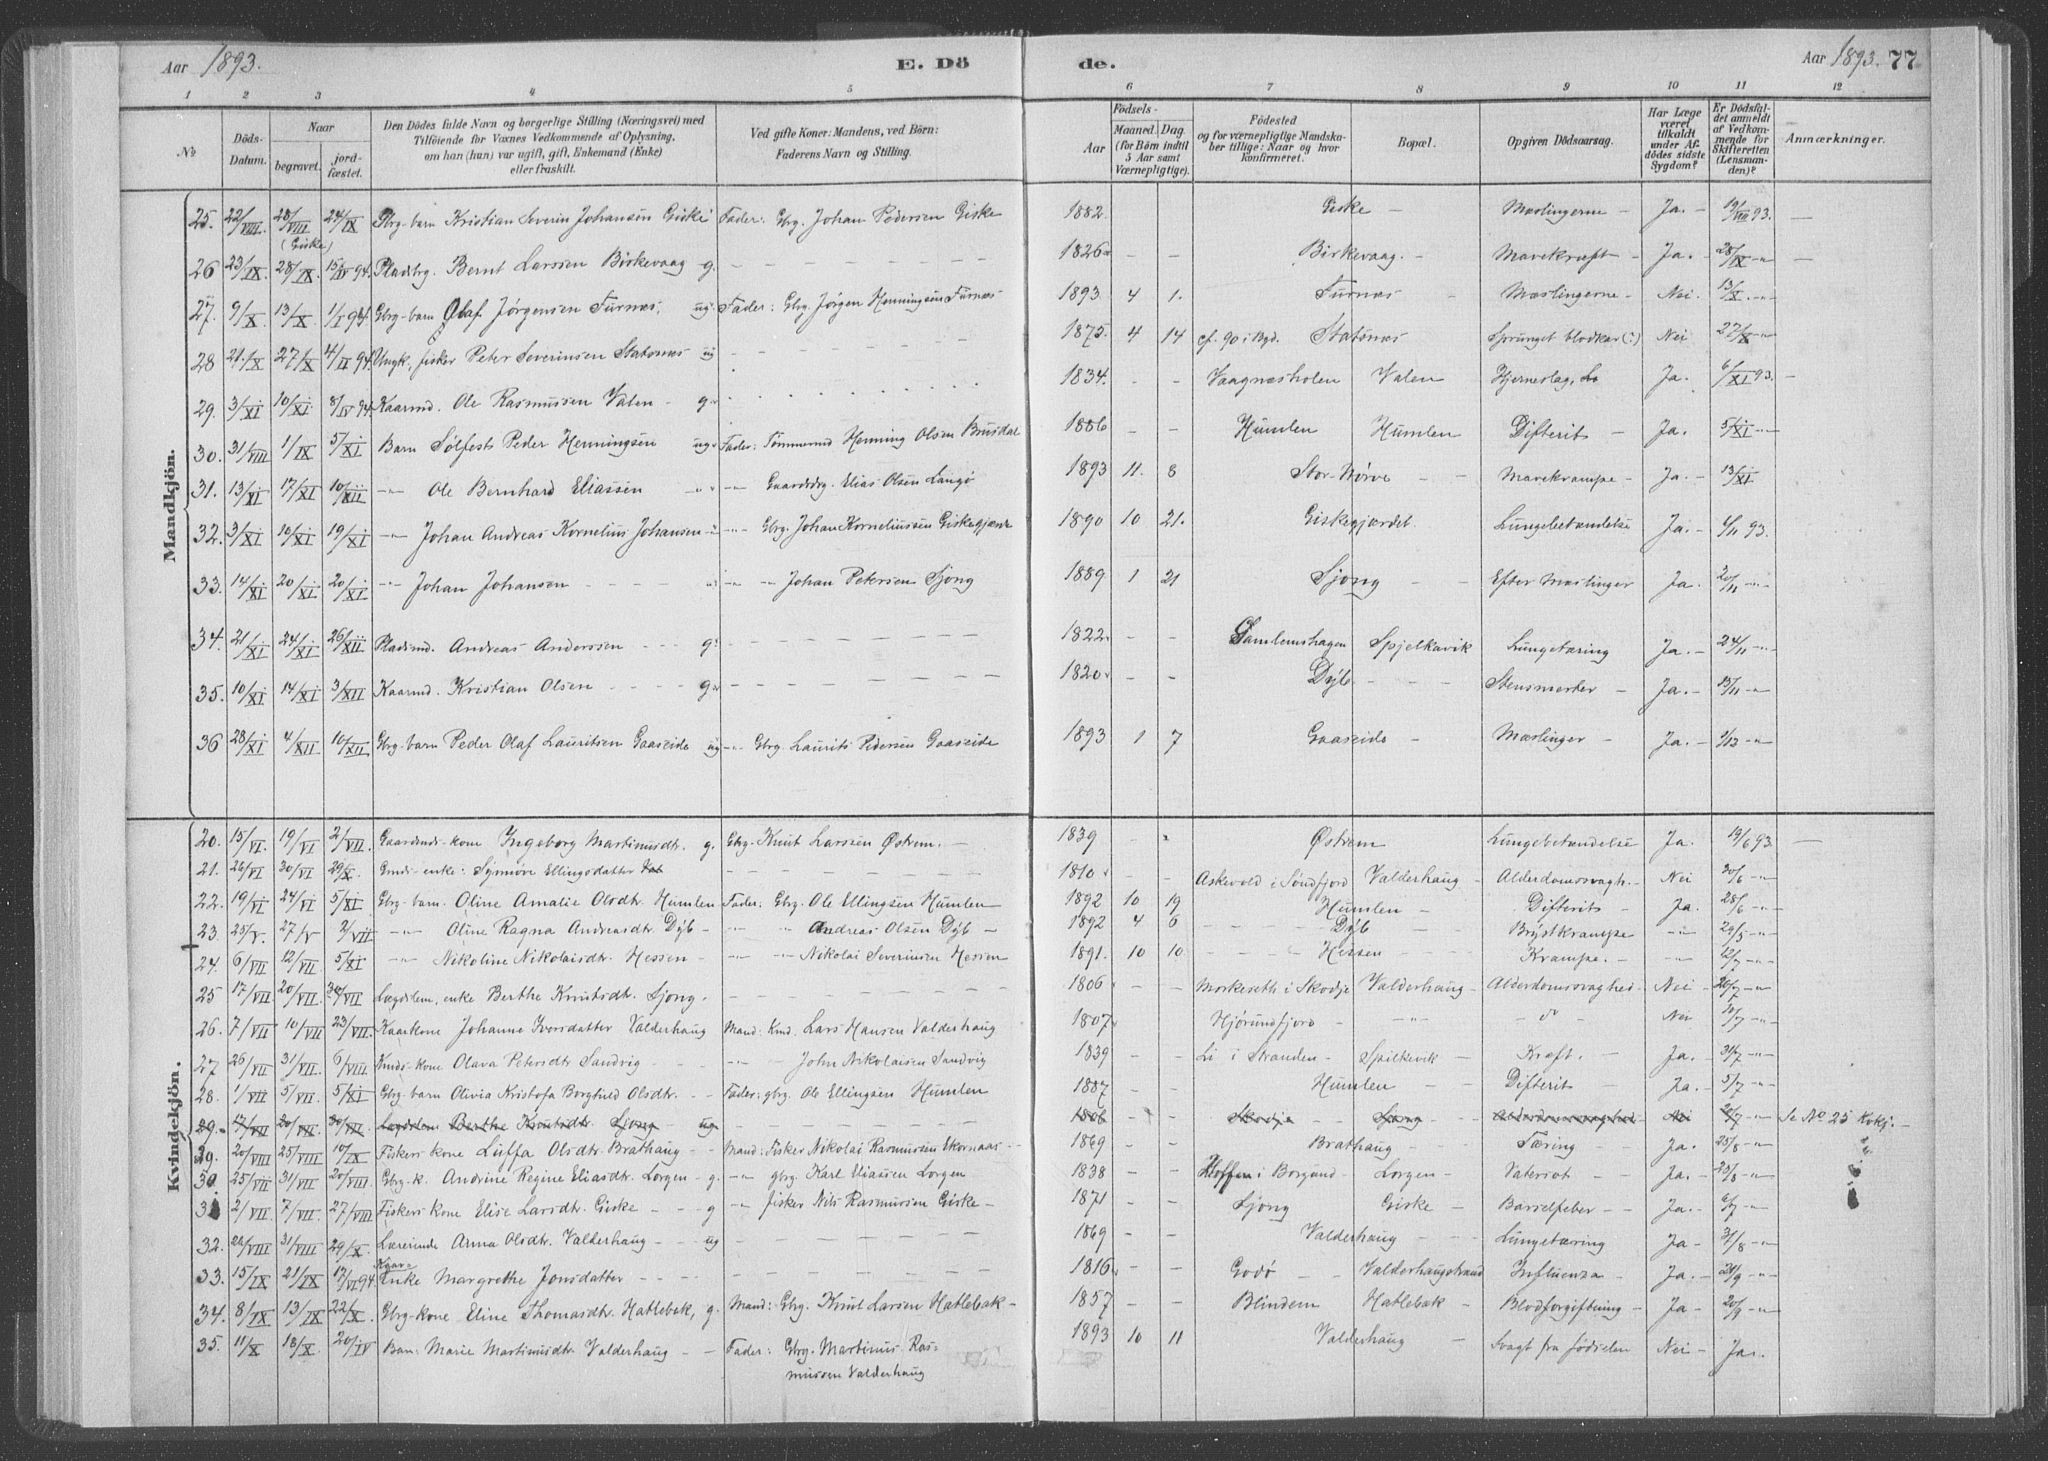 Aar 1893. E. Dö de. Aar 1893. 77
1 2 3 4 5 6 7 8 9 10 11 12
No. Döds-Datum. Naar begravet. jord-fæstet. Den Dödes fulde Navn og borgerlige Stilling (Næringsvei) med Tilföiende for Voxnes Vedkommende af Oplysning, om han (hun) var ugift, gift, Enkemand (Enke) eller fraskilt. Ved gifte Koner: Mandens, ved Börn: Faderens Navn og Stilling. Födsels- Aar Maaned. Dag. (for Børn indtil 5 Aar samt Værnepligtige). Födested og for værnepligtige Mandska- ber tillige: Naar og hvor konfirmeret. Bopæl. Opgiven Dödsaarsag. Har Læge været tilkaldt under Af- dödes sidste Sygdom? Er Dödsfal- det anmeldt af Vedkom- mende for Skifteretten (Lensman- den)? Anmærkninger.
Mandkjön.
25. 22/VIII. 28/VIII (Giske) 24/IX Gbrg-barn Kristian Severin Johansen Giske Fader: Gbrg. Johan Pedersen Giske 1882. Giske - Mæslingerne - Ja. - 93. -
26 23/IX 28/IX. 15/IV 94. Pladsbrg. Bernt Larssen Birkevaag g. - 1826 - - Birkevaag. - Mavekræft - Ja. - 28/IX - " -
27. 9/X 13/X. 1/I 94. Gbrg-barn Olaf Jørgensen Furnæs, ug. Fader: Gbrg. Jørgen Henningsen Furnæs 1893. 4 1. Furnæs - Mæslingerne - Nei - 13/X. - "
28 21./X 27/X 4/II 94. Ungk., fisker Peter Severinsen Statsnæs ug - 1875. 4 14 cf. 90 i Bgd. Statsnæs Sprunget blodkar (?) Nei 27/X - "
29. 3/XI 10/XI. 8/IV 94. Kaarmd. Ole Rasmussen Valen - g. 1834. - - Vaagnæsholen Valen Hjerneslag, Ja. 6/XI 93. -
30. 31/VIII 1/IX 5/XI Barn Sølfest Peder Henningsen ug. Fader: Tømmermd Henning Olsen Brusdal 1886 - - Humlen Humlen Difterit - Ja. 5/XI - "
31. 13/XI 17/XI 10/XII - " - Ole Bernhard Eliassen - " - Gaardsbrg. Elias Olsen Langø 1893 11. 8 Stor-Nørve - Mavekrampe - Ja - 13/XI
32. 3/XI 10/XI 19/XI - " - Johan Andreas Kornelius Johansen - " - Gbrg. Johan Korneliussen Giskegjærde 1890 10 21. Giskegjærdet. Lungebetændelse Ja. - 4/11 93.
33. 14/XI 20/XI 20/XI - " - Johan Johansen - " - " - Johan Petersen Sjong 1889 1 21 Sjong - Efter Mæslinger Ja 20/11 - "
34. 21/XI 24/XI 26/XII Pladsmd. Andreas Anderssen - g. - 1822. - - Gamlemshagen Spjelkavik Lungetæring Ja. - 24/11 - "
35. 10/XI 14/XI 3/XII Kaarmd. Kristian Olsen - g. - 1820. Dyb - Stensmerter - Ja. - 13/11 - "
36 28/XI 4/XII 10/XII Gbrg-barn Peder Olaf Lauritsen Gaaseide ug - " - Gbrg. Laurits Pedersen Gaaseide 1893 1 7 Gaaseide - Mæslinger - Ja. - 9/12 - "
Kvindekjön.
20. 15/VI. 19/VI 2/VII. Gaardmds-kone Ingeborg Martinusdtr. g. Gbrg. Knut Larssen Østrem. - 1839 - Østrem Lungebetændelse Ja. 19/6 93. -
21. 26/VI 30/VI 29/X. Gmds-enke: Synnøve Ellingsdatter - 1810 - - Askevold i Søndfjord Valderhaug - Alderdomssvagh. - Nei - 30/6 - "
22. 19/VI 24/VI 5/XI Gbrg-barn. Oline Amalie Olsdtr. Humlen Fader: Gbrg. Ole Ellingsen Humlen 1892 10 19 Humlen - Difterit - Ja. 28/6 - "
23. 23/V. 27/V 2/VII - " - Oline Ragna Andreasdtr. Dyb - - " - Andreas Olsen Dyb - 1892 4 6 Dyb - Brystkrampe - " - 29/5 - "
24. 6/VII 12/VII. 5/XI - " - Nikoline Nikolaisdtr. Hessen - - " - Nikolai Severinsen Hessen 1891. 10 10 Hessen Krampe. - - " - 12/7 - "
25 17/VII 20/VII 30/VII Lægdslem, enke Berthe Knutsdtr. Sjong. - 1806 Morkeseth i Skodje Valderhaug - Alderdomssvaghed. - Nei - 20/7 - "
26. 7/VII 10/VII 23/VII. Kaarkone Johanne Iversdatter Valderhaug Mand: Kmd. Lars Hansen Valderhaug 1807 Hjørundfjord - " - d° - Nei 20/7 - "
27 26/VII 31/VII. 6/VIII Gmds-kone Olava Petersdtr Sandvig - - " - John Nikolaisen Sandvig 1839 - - Li i Stranden - Spilkevik - Kræft. - Ja. - 31/7 - "
28. 1/VII 5/VII 5/XI Gbrg barn Olivia Kristofa Borghild Olsdtr. - Fader: gbrg. Ole Ellingsen Humlen 1887 - - Humlen - Difterit - Ja - 5/7 - "
29. 17/VII 20/VII. 30/VII. Lægdslem Berthe Knutsdtr. Sjong ug 1806 - Skodje - Sjong - Alderdomssvaghed Nei 20/7 - " Se No 25 Kvkj. -
29. 20/VIII 25/VIII 10/IX Fiskers kone Luffa Olsdtr. Brathaug - Mand: Fisker Nikolai Rasmussen Ekornaas 1869 - - Brathaug - Tæring - Ja. - 25/8 - "
30. 25/VII 31/VII 20/VIII Gbrg-k. Andrine Regine Eliasdtr. Lorgen - g. - " - gbrg. Karl Eliassen Lorgen 1838 - - Hoffen i Borgund - Lorgen - Vatersot - Ja - 23/8 - "
31 2/VII 7/VII. 27/VIII Fiskers kone Elise Larsdtr. Giske - g - " - fisker Nils Rasmussen Giske - 1871 - - Sjong Giske - Barselfeber - Ja. - 6/7 - "
32. 22/VIII 31/VIII 29/X. Lærerinde Anna Olsdtr. Valderhaug - ug - 1869 - - Valderhaug - Lungetæring Ja - 31/8 - "
33. 15/IX 21/IX 17/VI 94 Kaare Enke Margrethe Jonsdatter - 1816 - - Godø - Valderhaugstrand Influenza - Ja. - 21/9 - "
34. 8/IX 13/IX 22/X. Gbrg-kone Eline Thomasdtr. Hatlebak, g. Mand: Gbrg. Knut Larsen Hatlebak - 1857 - - Blindem Hatlebak - Blodforgiftning - Ja - 20/9 - "
35. 11/X 18/X. 20/IV Barn: Marie Martinusdtr. Valderhaug - Fader: Gbrg. Martinus Ras- 1893 10 11 Valderhaug - Svagt fra fødselen Nei - Ja.
mussen Valderhaug